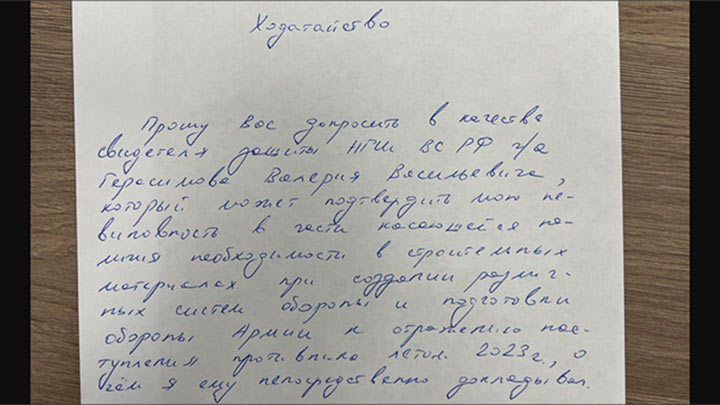 Ходатайство
Прошу Вас допросить в качестве
свидетеля защиты НГШ ВС РФ г/а
Герасимова Валерия Васильевича,
который может подтвердить мою не-
виновность в части касающейся на-
личия необходимости в строительных
материалах при создании различ-
ных систем обороны и подготовки
обороны Армии к отражению нас-
тупления противника летом 2023 г., о
чём я ему непосредственно докладывал.